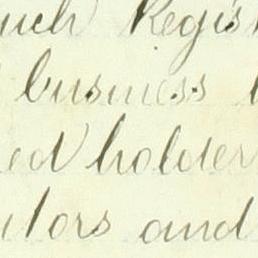 uch Regis
business
ed holder
utors and